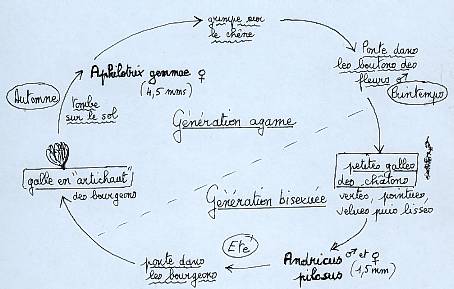 grimpe sur
le chêne
Ponte dans
les boutons des
fleurs ♂
Printemps
Aphilotrix gemmae ♀
(4,5 mms)
Automne
tombe
sur le sol
Génération agame
galle en "artichaut"
des bourgeons
petites galles
des châtons
vertes, pointues,
velues puis lisses
Génération bisexuée
Eté
ponte dans
les bourgeons
Andricus ♂ et ♀
pilosus (1,5 mm)